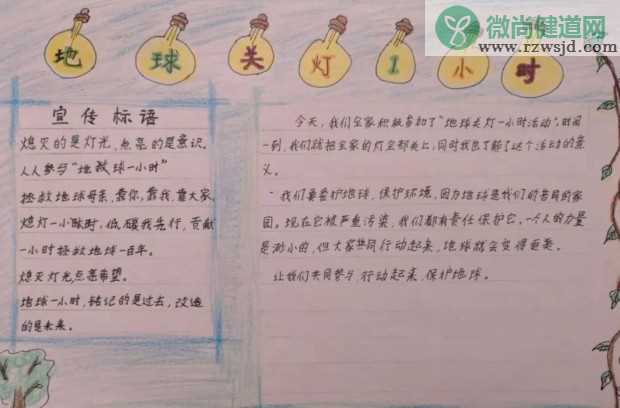 微尚健道网
www.rzwsjd.com
地球关灯1小时
宣传标语
熄灭的是灯光,点亮的是意识。
人人参与"地球一小时"
拯救地球母亲,靠你,靠我,靠大家。
熄灯一小时,低碳我先行,贡献
一小时拯救地球一百年。
熄灭灯光点亮希望。
地球一小时,铭记的是过去,改造
的是未来。
今天,我们全家积极参加了"地球关灯一小时活动",时间
一到,我们就把全家的灯全都关上,同时我也了解了这个活动的意
义。
我们要爱护地球,保护环境,因为地球是我们的
家园。现在它被严重污染,我们都有责任保护它。一个人的力量
是渺小的,但大家共同行动起来,地球就会变得更美。
让我们共同参与,行动起来,保护地球。